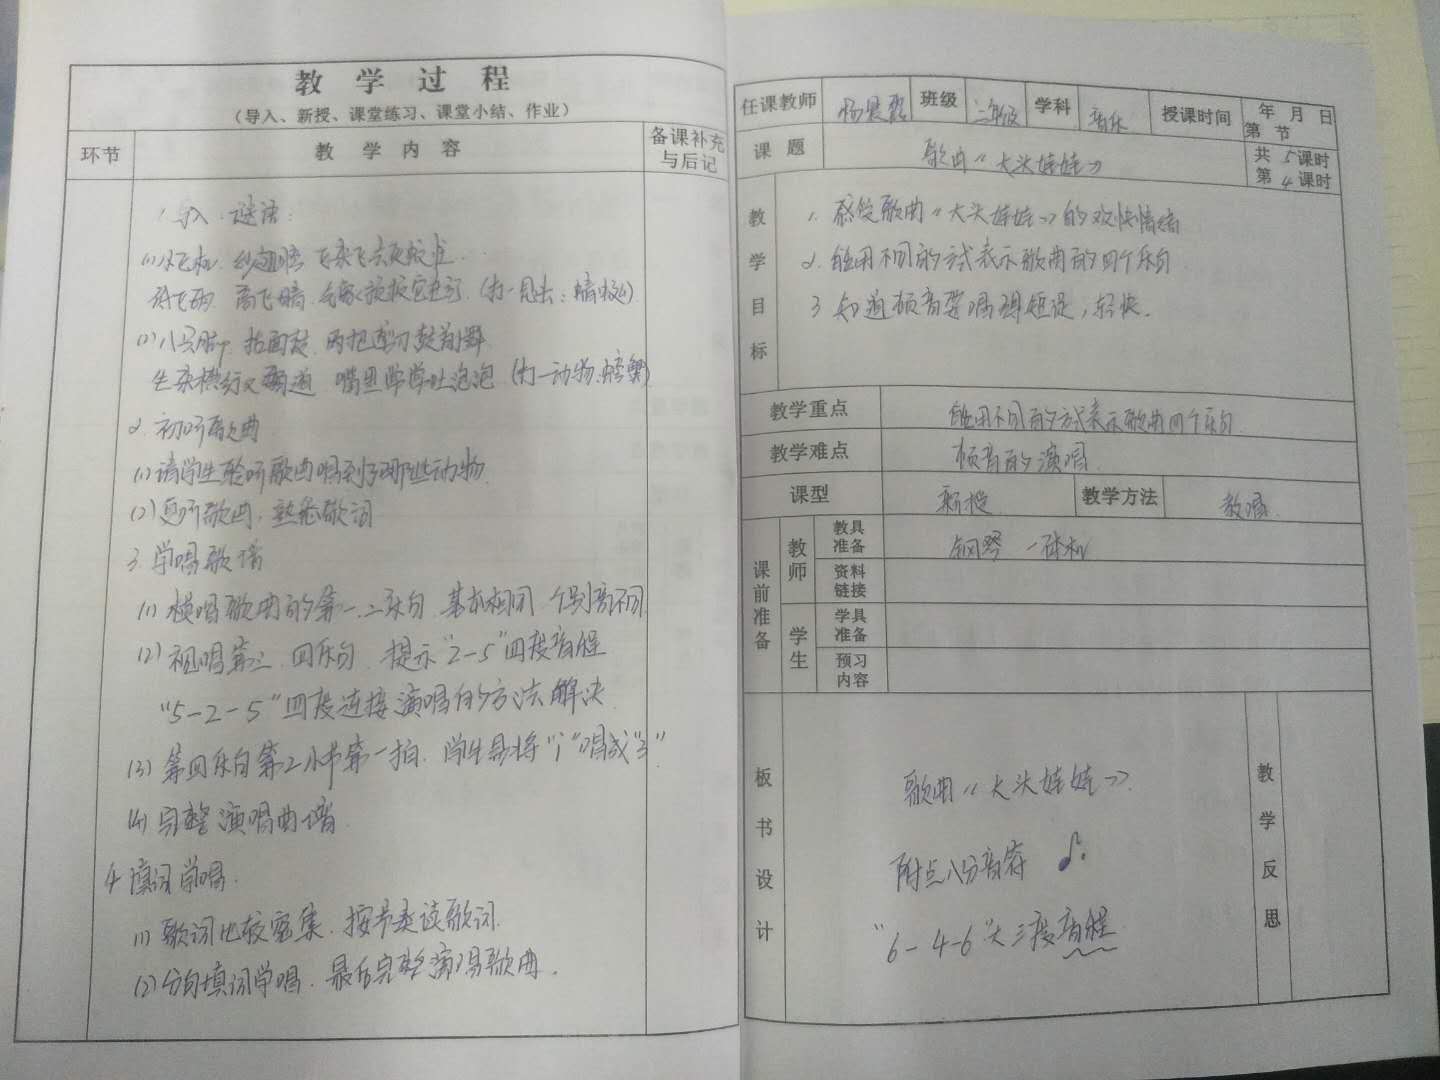 教 学 过 程
（导入、新授、课堂练习、课堂小结、作业）
环节
教 学 内 容
备课补充
与后记
1. 导入 谜语：
(1) 小飞机 纱翅膀 飞来飞去
(打一昆虫：蜻蜓)
(2) 八只脚 抬面鼓 两把剪刀鼓前舞
生来横行又霸道 嘴里常常吐泡泡 (打一动物:螃蟹)
2. 初听歌曲
(1) 请学生聆听歌曲唱到了哪些动物
(2) 复听歌曲，熟悉歌词
3. 学唱歌谱
(1) 模唱歌曲的第一、二乐句，基本相同，个别音不同
(2) 视唱第三、四乐句，提示“2-5”四度音程
“5-2-5”四度连接演唱的方法解决
(3) 第四乐句第2小节第一拍，学生易将“i”唱成“3”
(4) 完整演唱曲谱
4 填词学唱.
(1) 歌词比较密集，按节奏读歌词.
(2) 分句填词学唱，最后完整演唱歌曲.
任课教师
班级 三年级 学科 音乐 授课时间 年 月 日
第 节
课 题 歌曲《大头娃娃》 共 5 课时
第 4 课时
教学目标
1. 感受歌曲《大头娃娃》的欢快情绪
2. 能用不同的方式表示歌曲的四个乐句
3 知道顿音要唱得短促，轻快.
教学重点 能用不同的方式表示歌曲四个乐句.
教学难点 顿音的演唱
课型 新授 教学方法 教唱
课前准备
教师
教具准备 钢琴 一体机
资料链接
学生
学具准备
预习内容
板书设计
歌曲《大头娃娃》
附点八分音符 ♪.
“6-4-6”大三度音程
教学反思